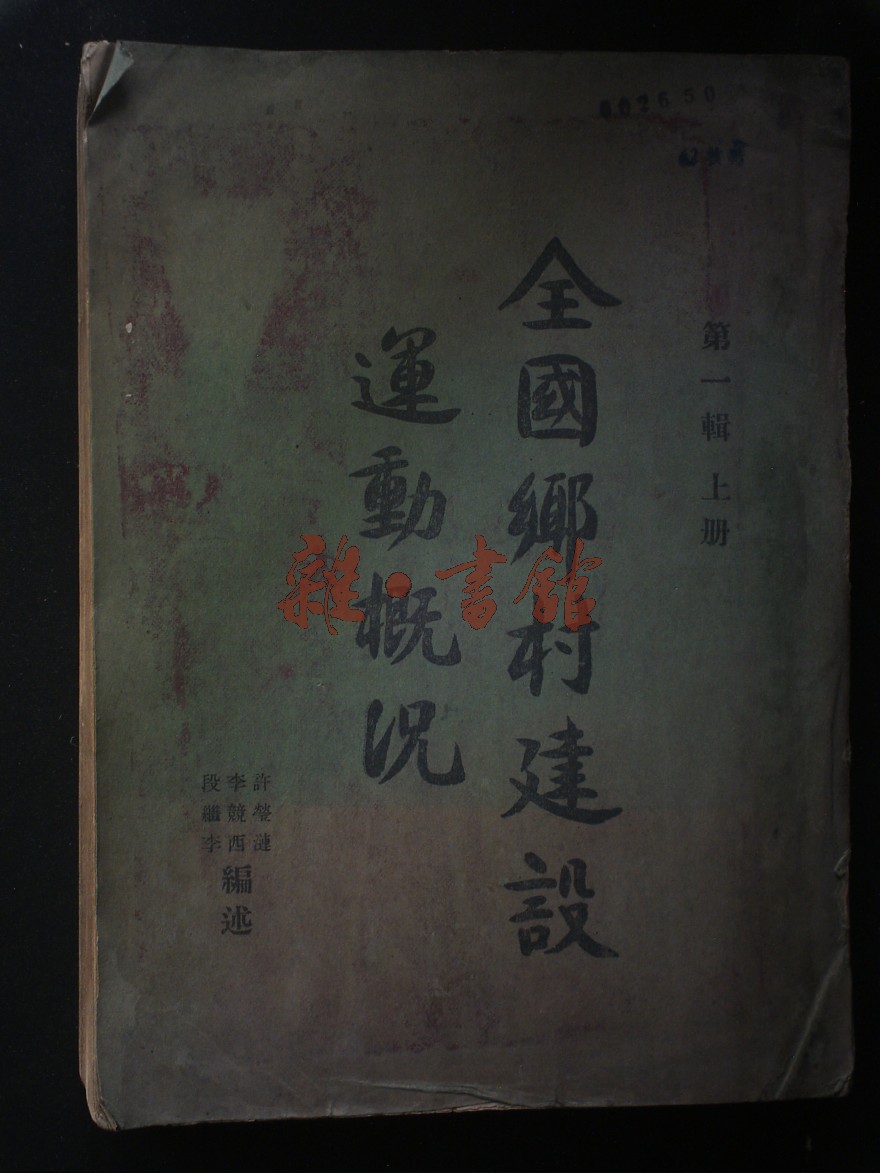 002650
第一輯 上册
全國鄉村建設
運動概況
許瑩漣
李競西
段繼李
編述
雜·書館